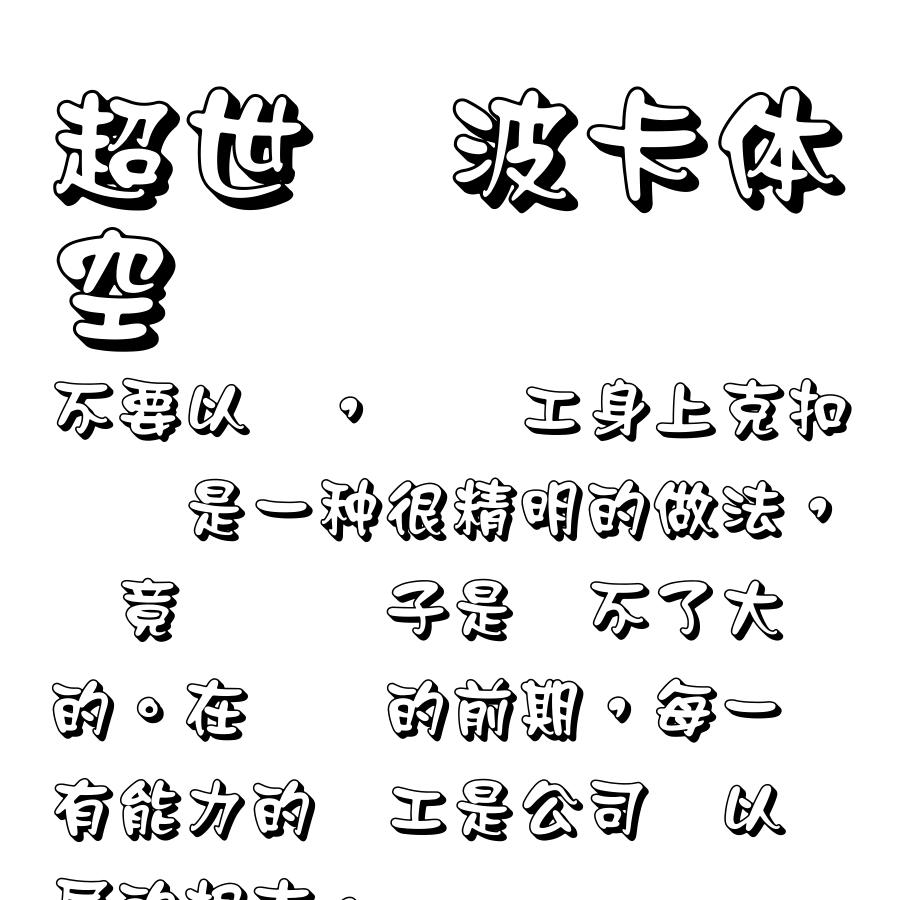 超世　波卡体
空
不要以　，　　工身上克扣
　　是一种很精明的做法，
　竟　　　子是　不了大
的。在　　的前期，每一
有能力的　工是公司　以